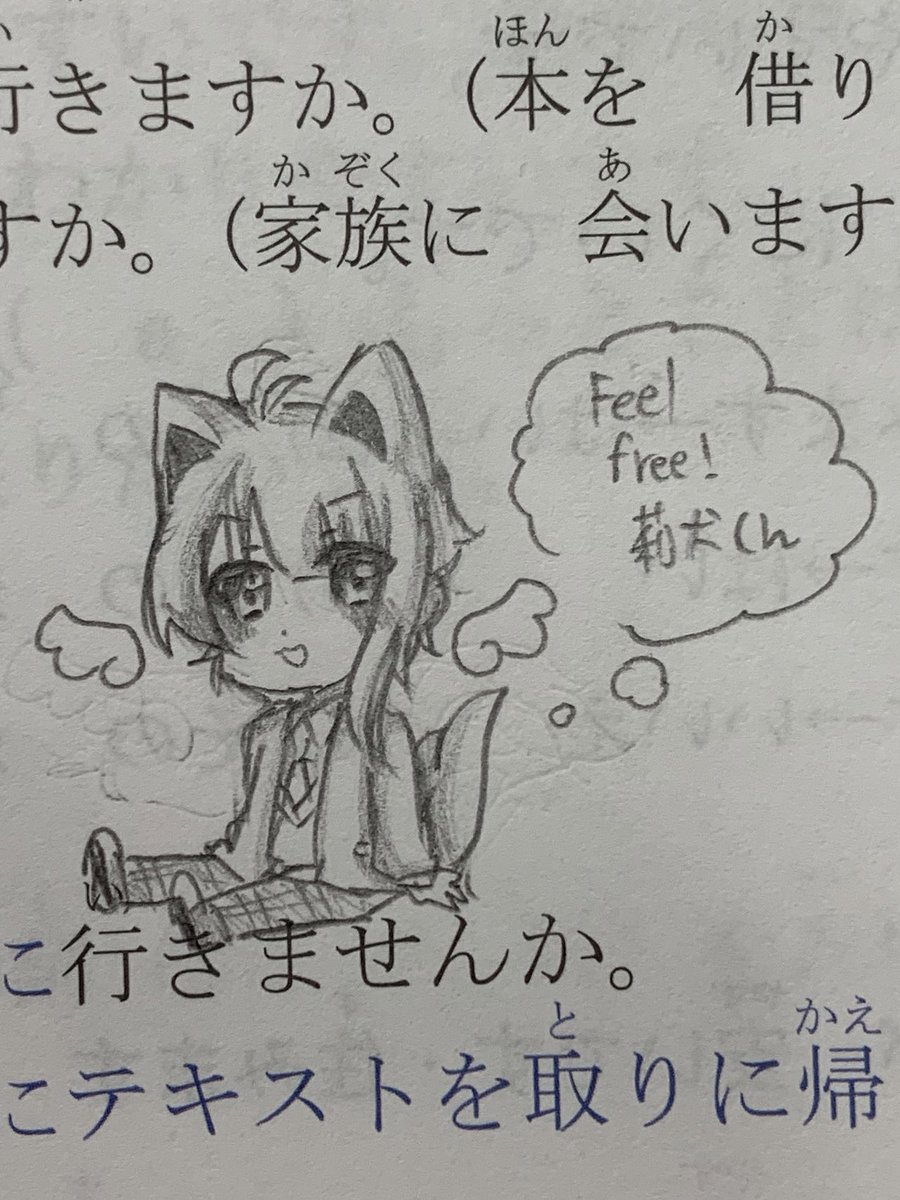 ほん か
行きますか。(本を 借り
か ぞく あ
すか。(家族に 会います
Feel
free!
莉犬くん
こ行きませんか。
と かえ
こテキストを取りに帰